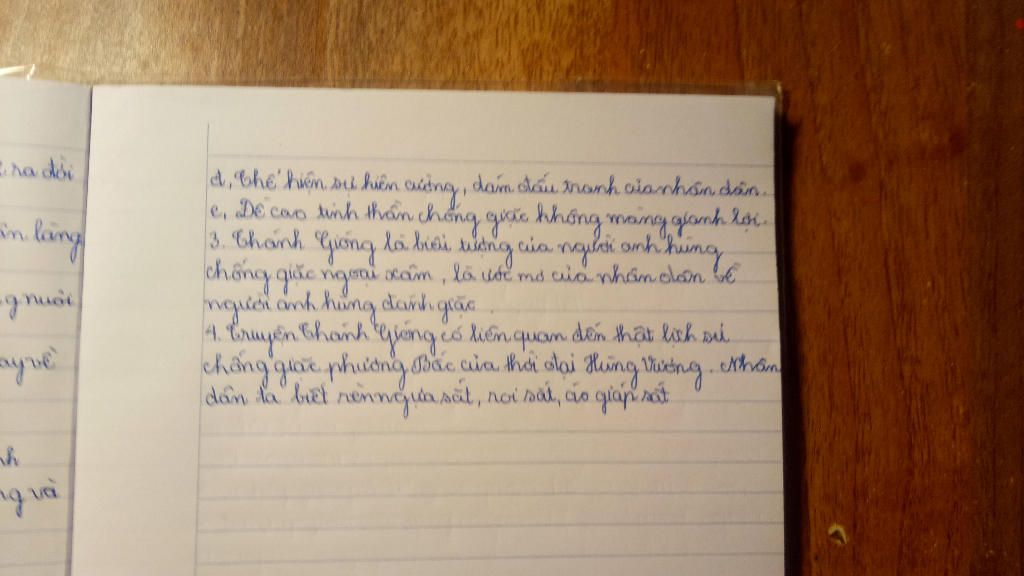 ra đời
ăn làng
g nuôi
ay về
nh
ng và
d, Thể hiện sự kiên cường, dám đấu tranh của nhân dân.
e, Đề cao tinh thần chống giặc không màng gianh lợi.
3. Thánh Gióng là biểu tượng của người anh hùng
chống giặc ngoại xâm, là ước mơ của nhân dân về
người anh hùng đánh giặc.
4. Truyện Thánh Gióng có liên quan đến thật lịch sử
chống giặc phương Bắc của thời đại Hùng Vương. Nhân
dân ta biết rèn ngựa sắt, roi sắt, áo giáp sắt